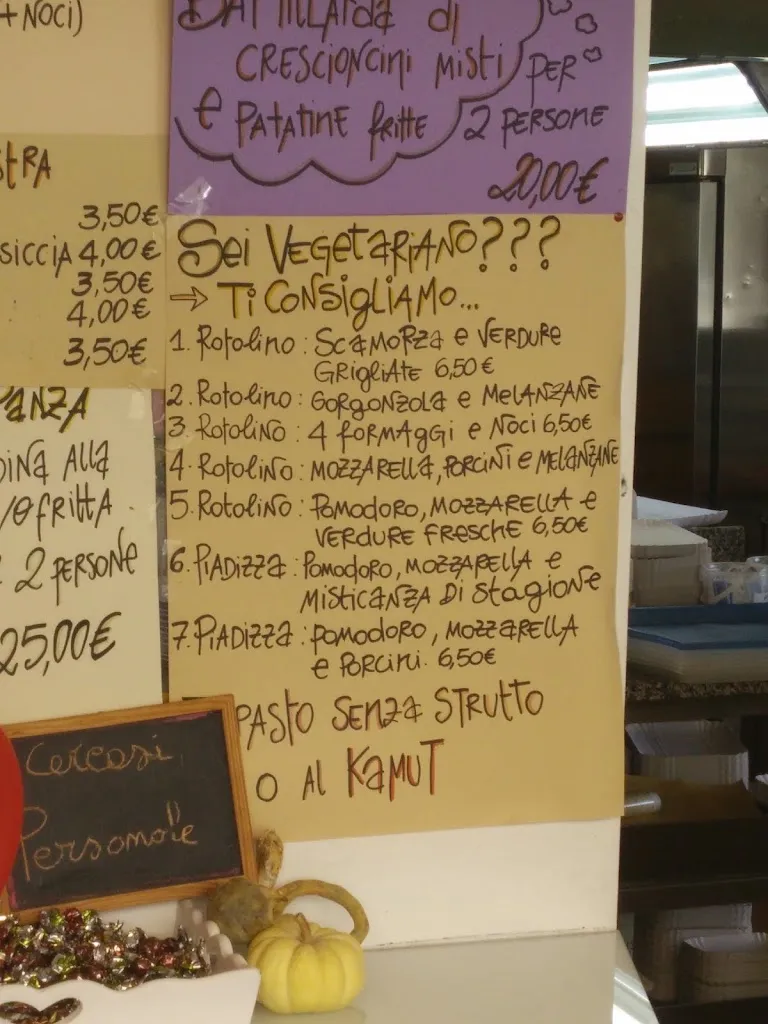 + NOCI)
di
CRESCIONCINI MISTI
e PATATINE fRitte
PER
2 PERSONE
20,00€
StRA
3,50€
SICCIA 4,00€
3,50€
4,00€
3,50€
PANZA
DINA ALLA
fRittA
2 PERSONE
25,00€
Sei VEGETARIANO???
→ Ti CONSIGLIAMO...
1. Rotolino: SCAMORZA e VERDURE
GRIGLIATE 6,50€
2. Rotolino: GORGONZOLA e MELANZANE
3 Rotolino: 4 fORMAGGI e NOCI 6,50€
4. Rotolino: MOZZARELLA, PORCINI e MELANZANE
5. Rotolino: POMODORO, MOZZARELLA e
VERDURE FRESCHE 6,50€
6. PIADIZZA: POMODORO, MOZZARELLA e
MISTICANZA DI StAGIONE
7. PIADIZZA: POMODORO, MOZZARELLA
e PORCINI. 6,50€
PASTO SENZA STRUTTO
O AL KAMUT
Cercasi
Personale